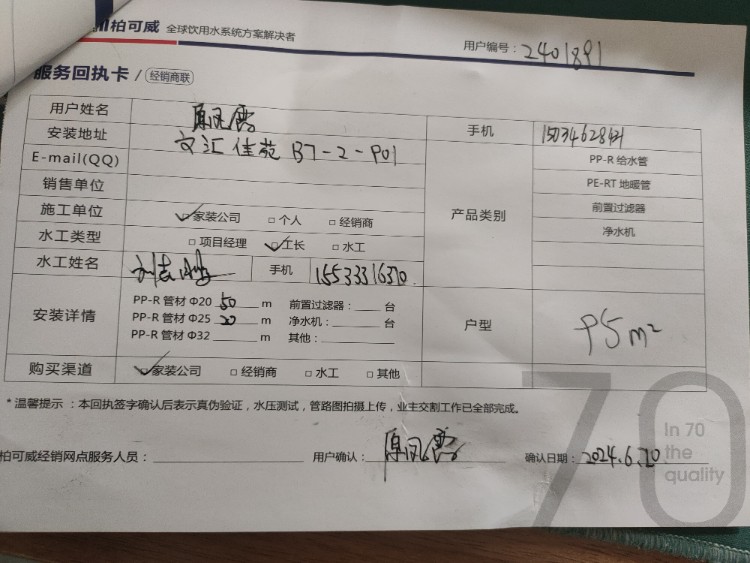 柏可威 全球饮用水系统方案解决者
用户编号：2401891
服务回执卡 / 经销商联
用户姓名 原凤霞 手机
安装地址 文汇佳苑 B7-2-901 PP-R 给水管
E-mail(QQ) PE-RT 地暖管
销售单位 产品类别 前置过滤器
施工单位 ☑家装公司 □个人 □经销商 净水机
水工类型 □项目经理 ☑工长 □水工
水工姓名 手机 15533316370
安装详情 PP-R 管材 Φ20 50 m 前置过滤器：____台 户型 95m²
PP-R 管材 Φ25 20 m 净水机：____台
PP-R 管材 Φ32 ____ m 其他：____
购买渠道 ☑家装公司 □经销商 □水工 □其他
*温馨提示：本回执签字确认后表示真伪验证，水压测试，管路图拍摄上传，业主交割工作已全部完成。
柏可威经销网点服务人员：____ 用户确认：原凤霞 确认日期：2024.6.20
70
In 70
the
quality